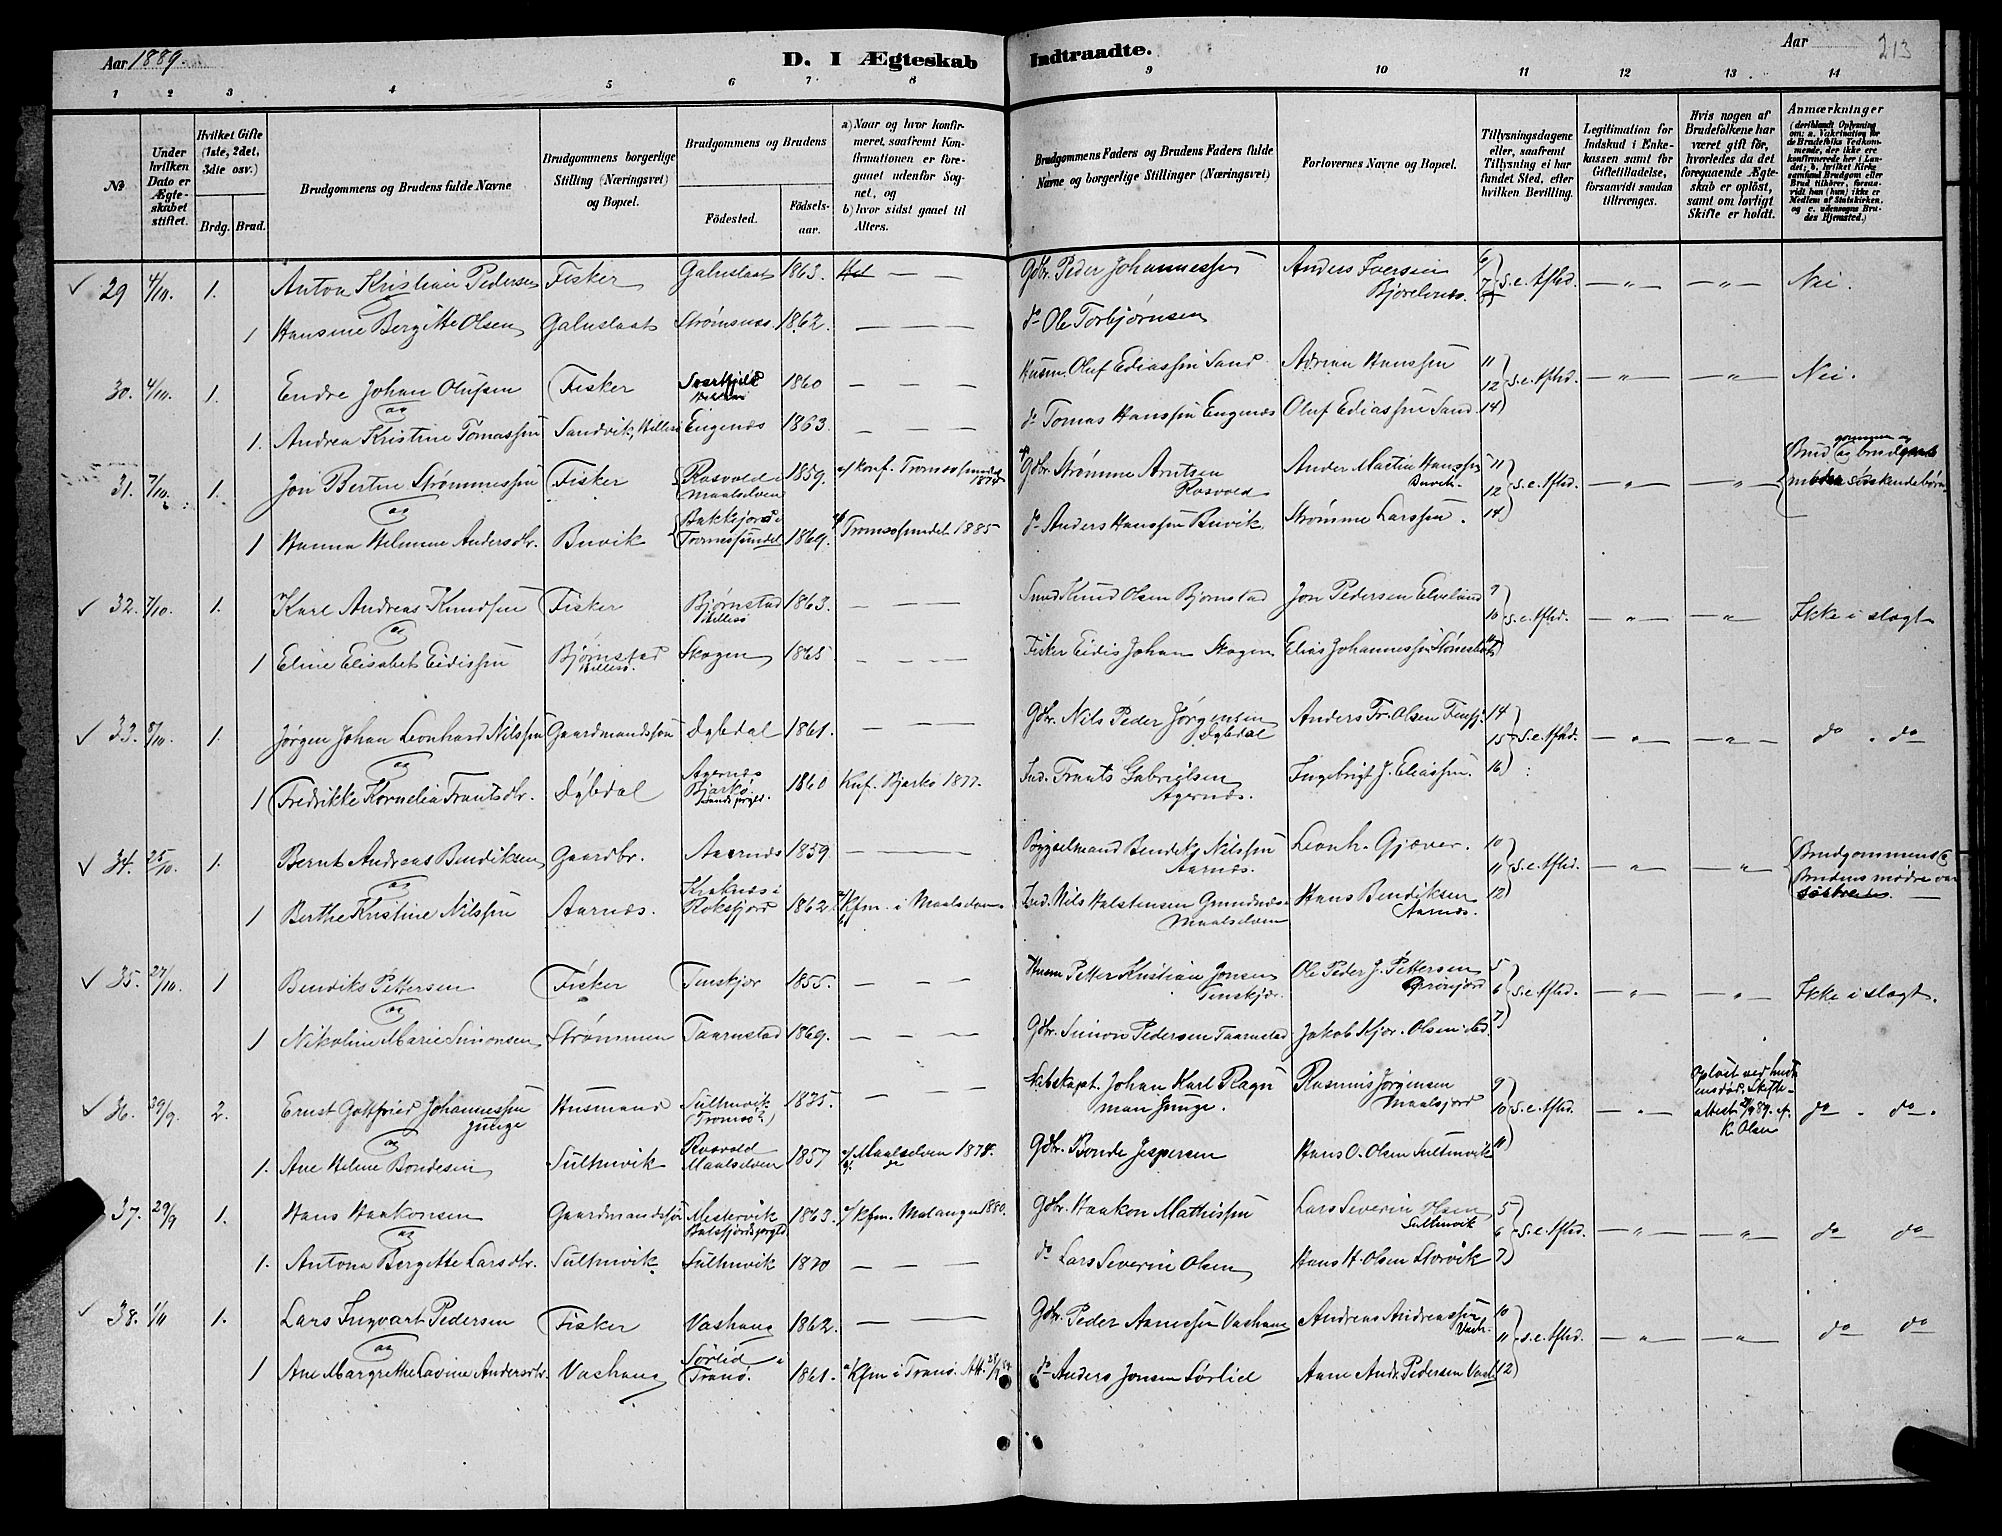 Aar 1889. D. I Ægteskab Indtraadte. Aar 213
1 2 3 4 5 6 7 8 9 10 11 12 13 14
No
Under hvilken Dato er Ægteskabet stiftet.
Hvilket Gifte (1ste, 2det, 3die osv.)
Brdg. Brud.
Brudgommens og Brudens fulde Navne
Brudgommens borgerlige Stilling (Næringsvei) og Bopæl.
Brudgommens og Brudens
Födested. Födselsaar.
a) Naar og hvor konfirmeret, saafremt Konfirmationen er foregaaet udenfor Sognet, og
b) hvor sidst gaaet til Alters.
Brudgommens Faders og Brudens Faders fulde Navne og borgerlige Stillinger (Næringsvei)
Forlovernes Navne og Bopæl.
Tillysningsdagene eller, saafremt Tillysning ei har fundet Sted, efter hvilken Bevilling.
Legitimation for Indskud i Enkekassen samt for Giftetilladelse, forsaavidt saadan tiltrænges.
Hvis nogen af Brudefolkene har været gift för, hvorledes da det foregaaende Ægteskab er oplöst, samt om lovligt Skifte er holdt.
Anmærkninger
(deriblandt Oplysning om: a. Vakcination for de Brudefolks Vedkommende, der ikke ere konfirmerede her i Landet; b. hvilket Kirkesamfund Brudgom eller Brud tilhörer, forsaavidt han (hun) ikke er Medlem af Statskirken, og c. udensogns Brudes Hjemsted.)
29 4/10. 1. Anton Kristian Pedersen Fisker Galnslaat 1863. — — Gdbr. Peder Johannessen Anders Iversen Bjorelvnes. 6 7 S.e.Tfhd. — „ — — „ — Nei.
og
1 Hansine Bergitte Olsen Galnslaat Strømsnes 1862. — — — do Ole Torbjørnsen
30. 4/10. 1. Endre Johan Olufsen Fisker 1860 — — — Husm. Oluf Ediassen Sand Adrian Hanssen 11 12 14 S.e.Tfhd. — „ — — „ — Nei.
og
1. Andrea Kristine Tomassen Sandvik, Hillesø Eugenæs 1863. — — — do Tomas Hanssen Eugenæs Oluf Ediassen Sand
31. 7/10. 1. Jon Bertin Strømmessen Fisker Rosvold i Maalselven 1859. a/ konf. Tromsøsundet Gdbr. Strømme Arntsen Rosvold Ander Martin Hanssen Buvik. 11 12 14 S.e.Tfhd. — „ — — „ —
og
1 Hanna Helmine Andersdtr. Buvik Bakkejord i Tromsøsundet 1869. Tromsøsundet 1885 do Anders Hanssen Buvik. Strømme Larssen.
32. 7/10. 1. Karl Andreas Knudsen Fisker Bjørnstad Hillesø 1863. — — — Knud Olsen Bjørnstad Jon Pedersen Elvelund 9 10 S.e.Tfhd. — „ — — „ — Ikke i slægt
og
1 Eline Elisabet Eidissen Bjørnstad Hillesø. Skogen 1865 — — — Fisker Eidis Johan Skogen Elias Johannessen
33. 8/10. 1. Jørgen Johan Leonhard Nilssen Gaardmandssøn Dybdal 1861. — — — Gdbr. Nils Peder Jørgensen Dybdal Anders Fr. Olsen 14 15 16 S.e.Tfhd. — „ — — „ — do „ do
og
1 Fredrikke Kornelia Frantsdtr. Dybdal Agernæs Bjarkø Sands prgld. 1860 Knf. Bjarkø 1877. Ind. Frants Gabrielsen Agernæs. Ingebrigt J. Eliassen.
34. 25/10. 1. Bernt Andreas Bendiksen Gaardbr. Aarnæs 1859. — — — Bygselmand Bendik Nilssen Aarnæs. Leonh. Gjæver. 10 11 12 S.e.Tfhd. — „ — — „ — Brudgommens & Brudens mødre var søstre. —
og
1 Berthe Kristine Nilssen Aarnæs. Kraknæs i Roksfjord 1862. Kfm. i Maalselven. Ind. Nils Halstensen Grundnæs Maalselven Hans Bendiksen Aarnæs.
35. 27/10. 1 Bendiks Pettersen Fisker Tenskjær 1855. — — — Husm Petter Kristian Jonsen Tenskjær. Ole Peder J. Pettersen Grønjord 5 6 7 S.e.Tfhd. — „ — — „ — Ikke i slægt.
og
1 Nikoline Marie Simonsen Strømmen Taarnstad 1869. — — — Gdbr. Simon Pedersen Taarnstad Jakob Kjær. Olsen
36. 29/9. 2. Ernst Gottfried Johannessen Junge Husmand Sultenvik (Tromsø?) 1825. — — — Skibskapt. Johan Karl Junge. Rasmus Jørgensen Maalsjord 9 10 11 S.e.Tfhd. — „ — opløst ved K. Olsen do „ do.
og
1. Ane Heline Bondesen Sultenvik Rosvold Maalselven 1857 a/ Maalselven 1874. b/ do Gdbr. Bonde Jespersen Hans O. Olsen Sultenvik
37. 29/9 1. Hans Haakonsen Gaardmandssøn Mestervik Balsfjords prgld. 1863. a/ Kfm. Malangen 1880. Gdbr. Haakon Mathissen Lars Severin Olsen Sultenvik 5 6 7 S.e.Tfhd. — „ — — „ — do do
og
1. Antona Bergitte Larsdtr. Sultenvik Sultenvik 1870 — — — do Lars Severin Olsen Hans H. Olsen Storvik
38. 1/11 1. Lars Ingvart Pedersen Fisker Vashaug 1862. — — — Gdbr. Peder Aanesen Vashaug Andreas Andreassen Vash. 10 11 12 S.e.Tfhd. — „ — — „ — do do
og
1 Ane Margrethe Lovine Andersdtr. Vashaug Sørlid i Tranø. 1861. a/ Kfm i Tranø. do Anders Jonsen Sørlid Aane Andr. Pedersen Vash.